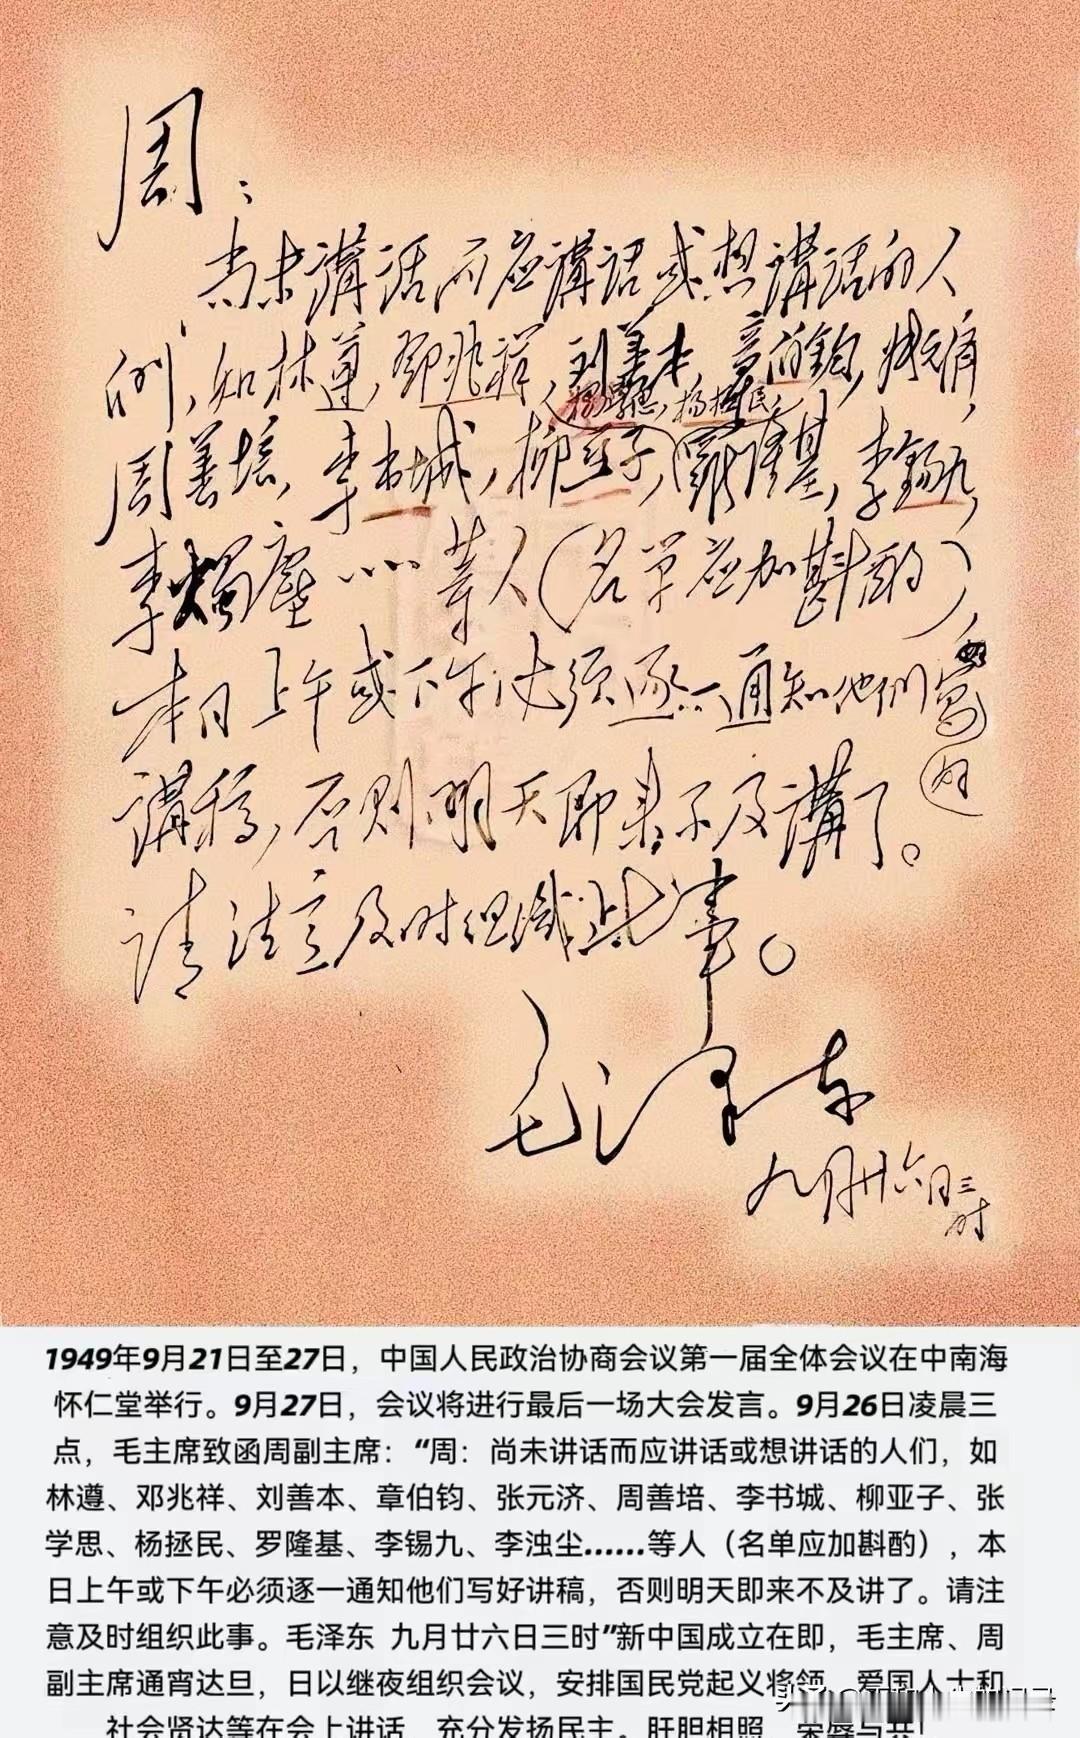 周：
尚未講話而应講話或想講話的人
们，如林遵，邓兆祥，刘善本，章伯鈞，张元济，
张学思，杨拯民，
周善培，李书城，柳亚子，羅隆基，李錫九，
李燭塵……等人（名单应加斟酌），
本日上午或下午必须逐一通知他们寫好
講稿，否则明天即来不及講了。
请注意及时组織此事。
毛泽东
九月廿六日三时
1949年9月21日至27日，中国人民政治协商会议第一届全体会议在中南海
怀仁堂举行。9月27日，会议将进行最后一场大会发言。9月26日凌晨三
点，毛主席致函周副主席：“周：尚未讲话而应讲话或想讲话的人们，如
林遵、邓兆祥、刘善本、章伯钧、张元济、周善培、李书城、柳亚子、张
学思、杨拯民、罗隆基、李锡九、李浊尘......等人（名单应加斟酌），本
日上午或下午必须逐一通知他们写好讲稿，否则明天即来不及讲了。请注
意及时组织此事。毛泽东 九月廿六日三时”新中国成立在即，毛主席、周
副主席通宵达旦，日以继夜组织会议，安排国民党起义将领、爱国人士和
社会贤达等在会上讲话，充分发扬民主。肝胆相照，荣辱与共！